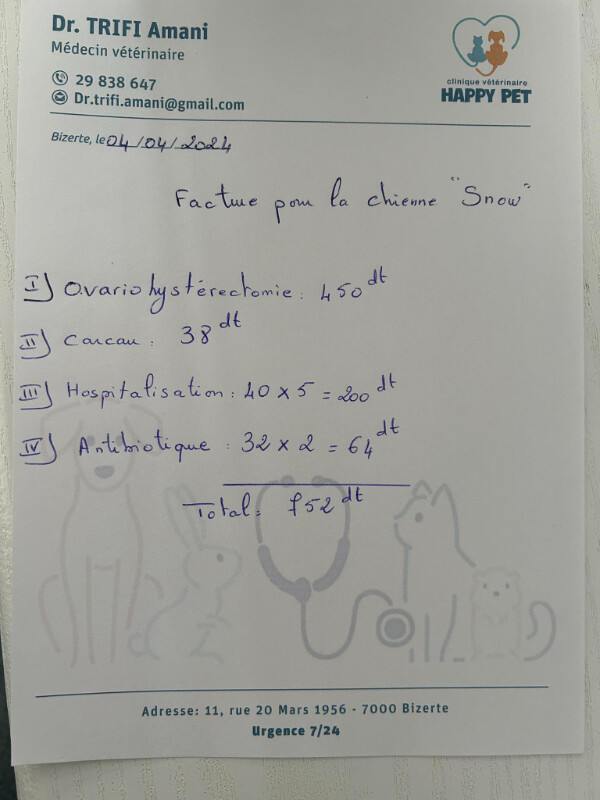 Dr. TRIFI Amani
Médecin vétérinaire
29 838 647
Dr.trifi.amani@gmail.com
clinique vétérinaire
HAPPY PET
Bizerte, le 04/04/2024
Facture pour la chienne "Snow"
I) Ovario hystérectomie : 450 dt
II) Carcan : 38 dt
III) Hospitalisation : 40 x 5 = 200 dt
IV) Antibiotique : 32 x 2 = 64 dt
Total : 752 dt
Adresse: 11, rue 20 Mars 1956 - 7000 Bizerte
Urgence 7/24